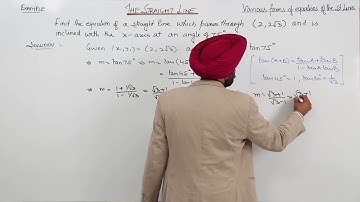 Example
THE STRAIGHT LINE
Various forms of equations of the st. Lines
Find the equation of a straight line which passes through (2, 2√3) and is
inclined with the x-axis at an angle of 75°
Solution - Given (x₁, y₁) = (2, 2√3) and tan 75°
⇒ m = tan 75° ⇒ m = tan (45°
[ tan (A+B) = tan A + tan B / 1 - tan A tan B
tan 45° = 1, tan 30° = 1/√3 ]
tan 45° +
1 -
⇒ m = 1 + 1/√3 / 1 - 1/√3 = √3+1 /
m = √3+1 / √3-1 × √3+1